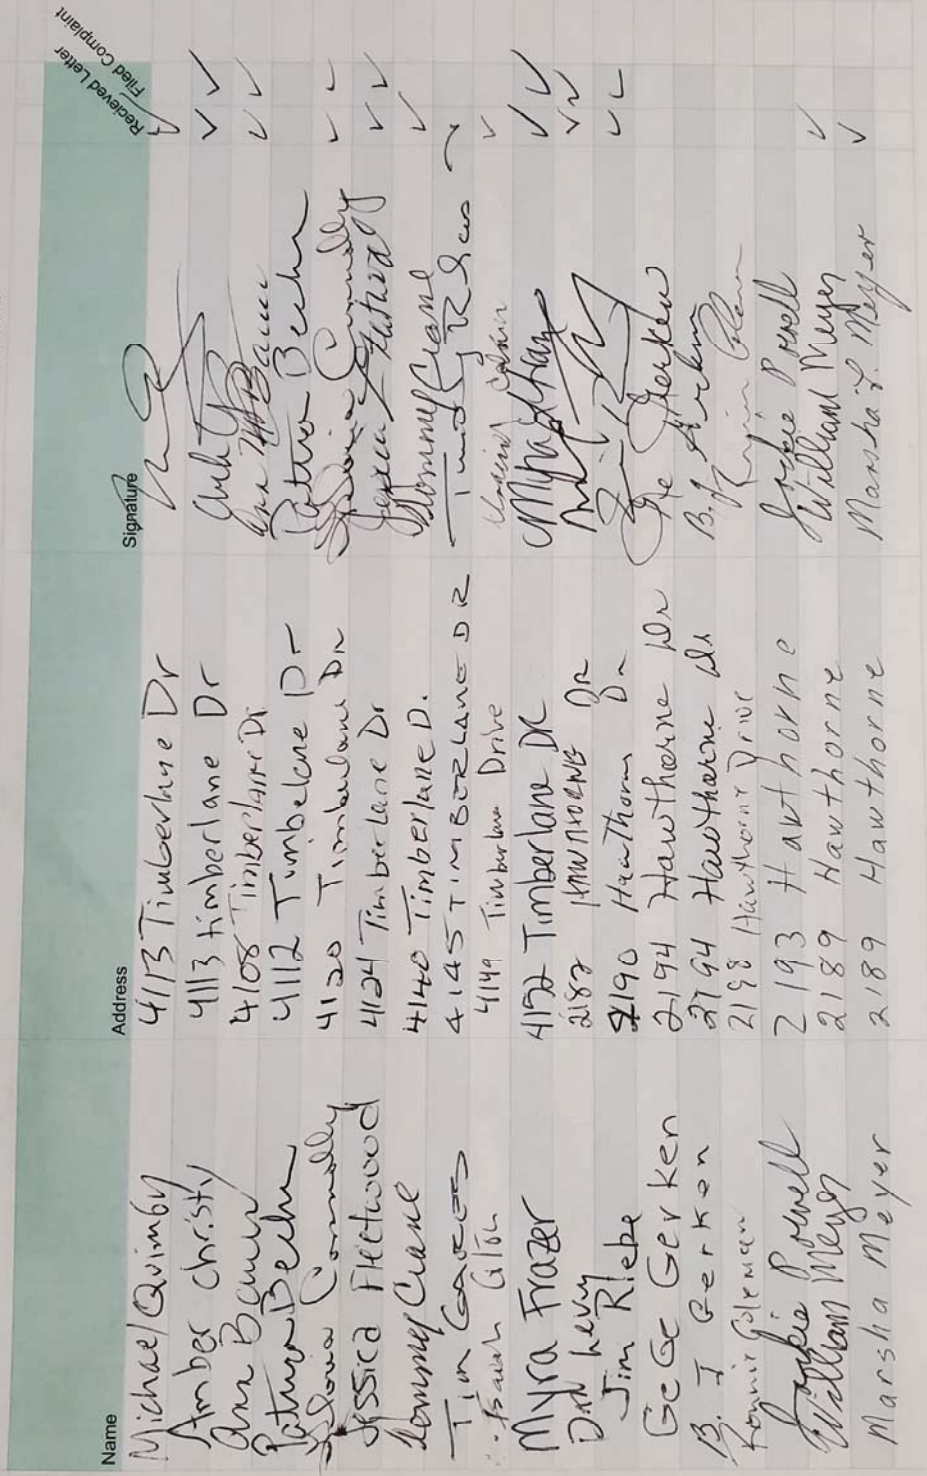 Name Address Signature Recieved Letter Filed Complaint
Michael Quimby 4113 Timberlane Dr
Amber Christy 4113 timberlane Dr
Ann 4108 Timberlane Dr Ann
Patricia Becker 4112 Timbelane Dr Patricia Becker
Connolly 4120 Timberlane Dr Connolly
Jessica Fleetwood 4124 Timberlane Dr Jessica
Tommy Crane 4140 Timberlane D. Tommy Crane
Tim 4145 TIMBERLANE DR
4149 Timberlane Drive
Myra Frazer 4152 Timberlane DR Myra Frazer
Dan Levy 2182 HAWTHORNE DR
Jim Rieke 2190 Hawthorn Dr
GeGe Gerken 2194 Hawthorne Dr GeGe Gerken
B. J Gerken 2194 Hawthorne Dr B. J. Gerken
Ronnie Coleman 2198 Hawthorne Drive
Powell 2193 Hawthorne Powell
William Meyer 2189 Hawthorne William Meyer
Marsha Meyer 2189 Hawthorne Marsha L. Meyer